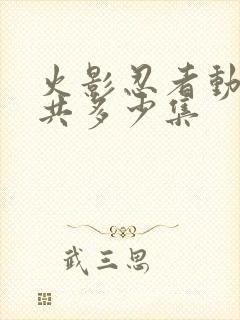 火影忍者動
共多少集
武三思